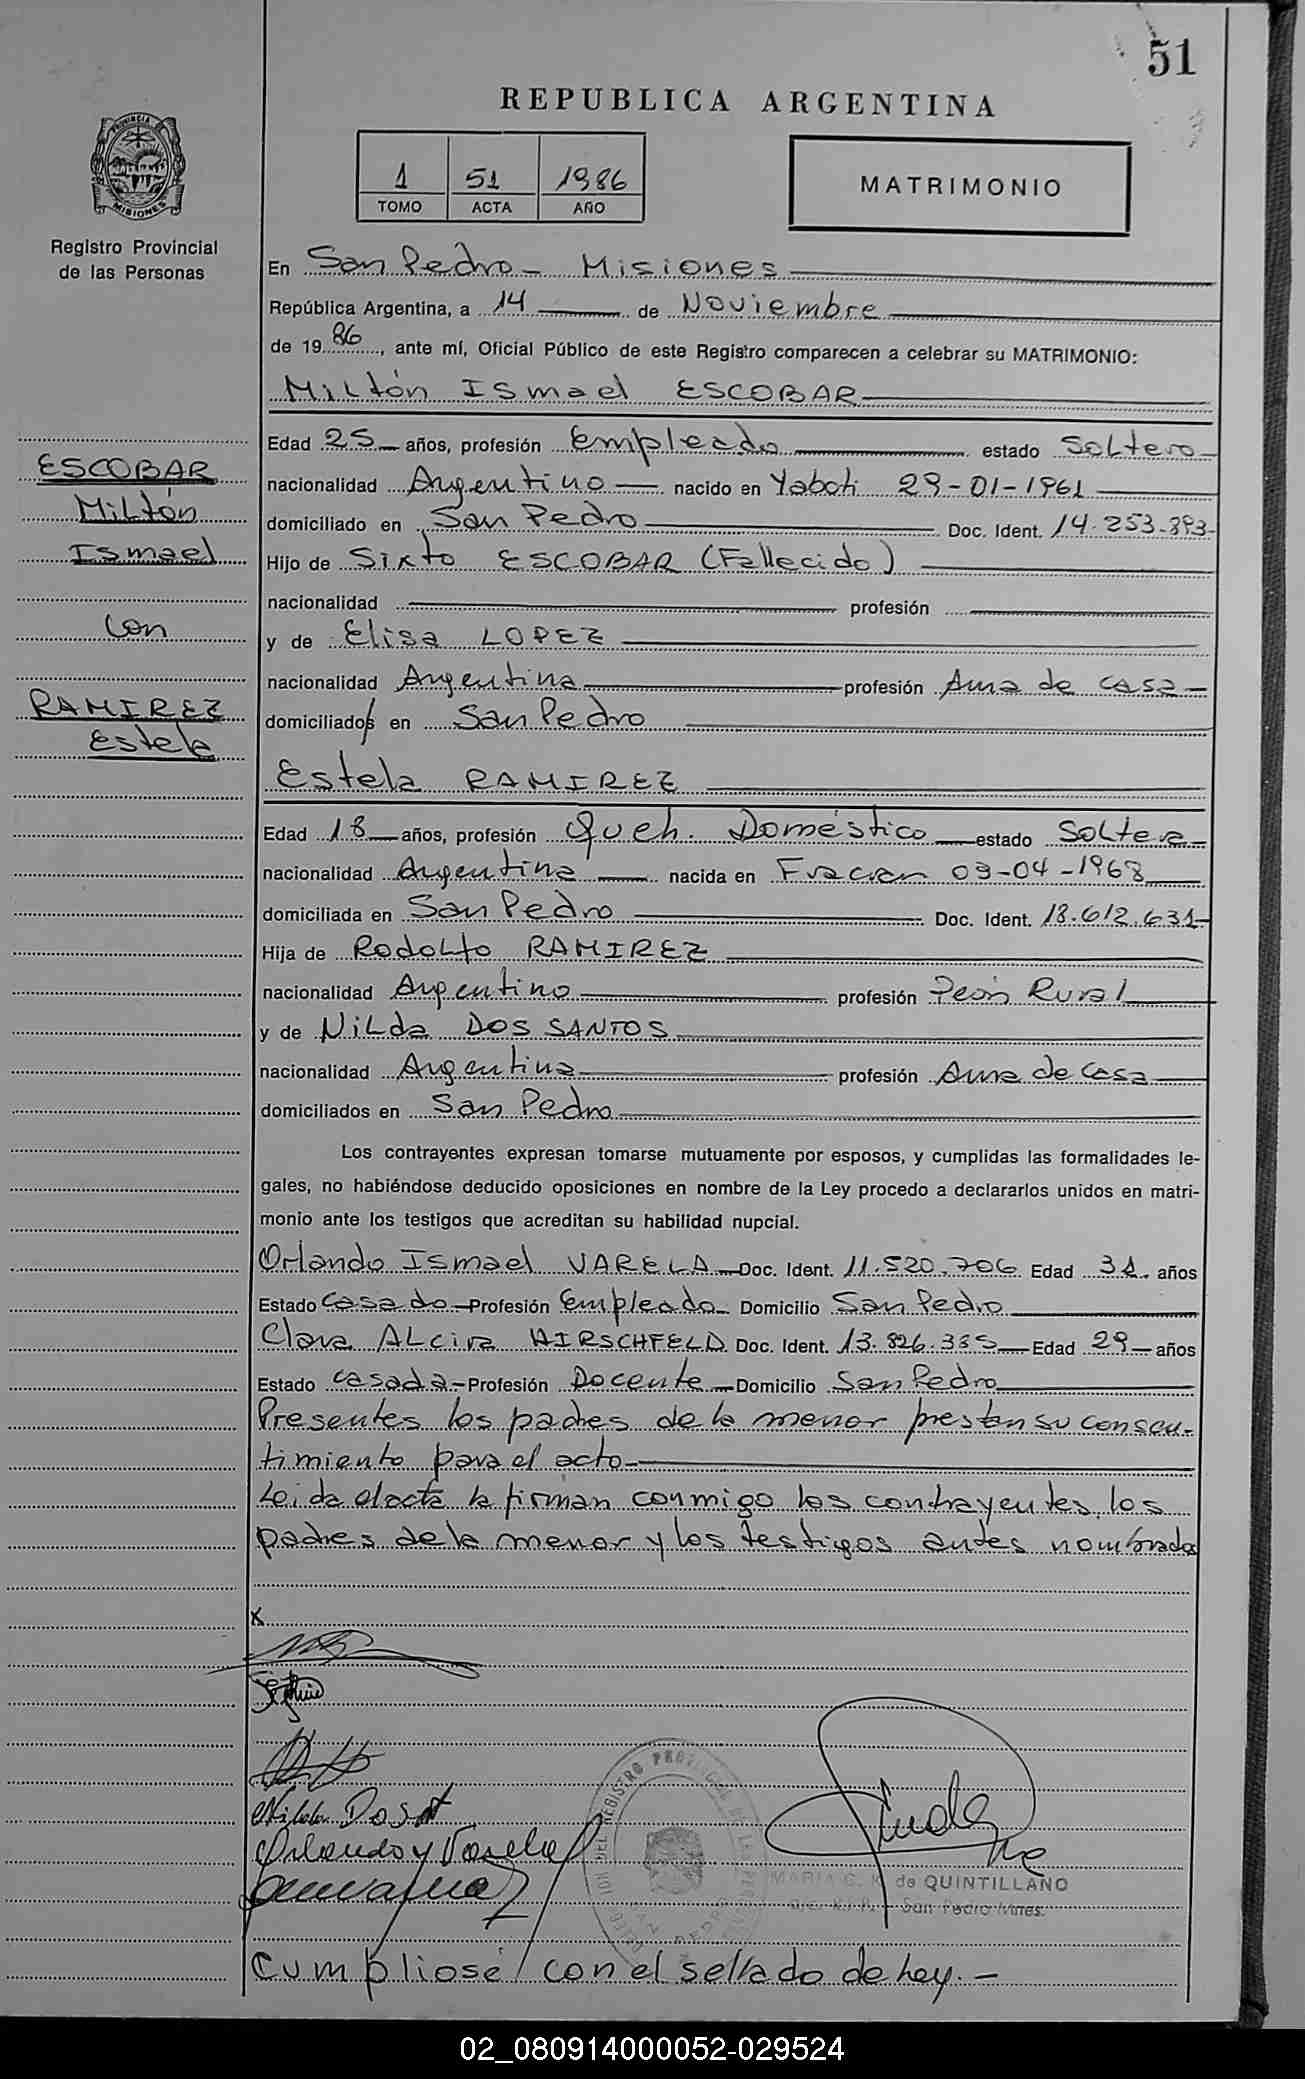 51
REPUBLICA ARGENTINA
PROVINCIA DE
MISIONES
1 51 1986
TOMO ACTA AÑO
MATRIMONIO
Registro Provincial
de las Personas
En San Pedro - Misiones
República Argentina, a 14 de Noviembre
de 1986, ante mí, Oficial Público de este Registro comparecen a celebrar su MATRIMONIO:
Miltón Ismael ESCOBAR
ESCOBAR
Miltón
Ismael
con
RAMIREZ
Estela
Edad 25 años, profesión Empleado estado Soltero
nacionalidad Argentino nacido en Yaboti 29-01-1961
domiciliado en San Pedro Doc. Ident. 14.253.893
Hijo de Sixto ESCOBAR (Fallecido)
nacionalidad profesión
y de Elisa LOPEZ
nacionalidad Argentina profesión Ama de casa
domiciliados en San Pedro
Estela RAMIREZ
Edad 18 años, profesión Queh. Doméstico estado Soltera
nacionalidad Argentina nacida en Fracran 09-04-1968
domiciliada en San Pedro Doc. Ident. 18.612.631
Hija de Rodolfo RAMIREZ
nacionalidad Argentino profesión Peón Rural
y de Nilda DOS SANTOS
nacionalidad Argentina profesión Ama de Casa
domiciliados en San Pedro
Los contrayentes expresan tomarse mutuamente por esposos, y cumplidas las formalidades le-
gales, no habiéndose deducido oposiciones en nombre de la Ley procedo a declararlos unidos en matri-
monio ante los testigos que acreditan su habilidad nupcial.
Orlando Ismael VARELA Doc. Ident. 11.520.706 Edad 31 años
Estado Casado Profesión Empleado Domicilio San Pedro
Clara ALcira HIRSCHFELD Doc. Ident. 13.826.385 Edad 29 años
Estado casada Profesión Docente Domicilio San Pedro
Presentes los padres de la menor prestan su consen-
timiento para el acto
Leida el acta la firman conmigo los contrayentes, los
padres de la menor y los testigos antes nombrados
x
Nilda Dos
Orlando Y Varela
MARIA C. K. de QUINTILLANO
San Pedro Mnes.
Cumpliose con el sellado de ley.-
02_080914000052-029524